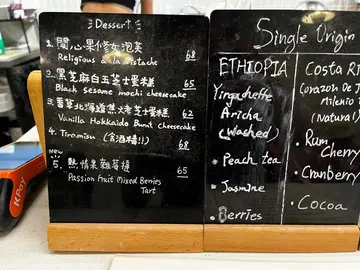 Dessert
1. 開心果修女泡芙
Religious a la pistache 68
2. 黑芝麻白玉芝士蛋糕 65
Black sesame mochi cheesecake
3. 雲呢拿北海道焦燶芝士蛋糕 62
Vanilla Hokkaido Burnt cheesecake
4. Tiramisu (含酒精!!) 68
NEW
5. 熱情果雜莓撻 65
Passion Fruit Mixed Berries
Tart
KPay
Single Origin
ETHIOPIA
Yirgacheffe
Aricha
(Washed)
• Peach tea
• Jasmine
• Berries
Costa Ri
Corazon De J
Milenio
(Natural)
• Rum
Cherry
• Cranberry
• Cocoa